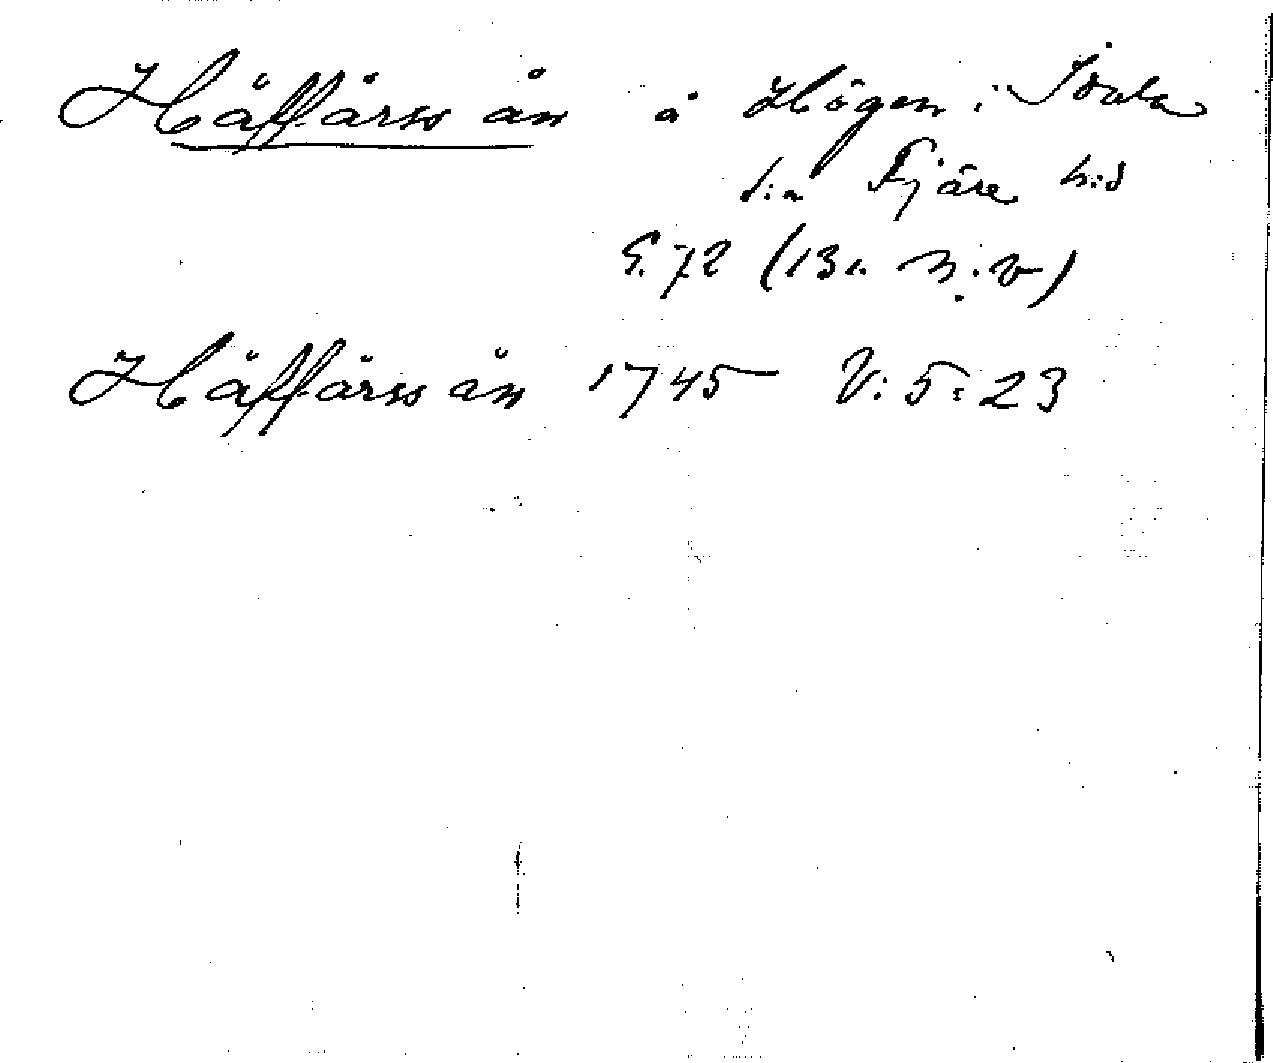 Häffärss ån å Högen i Idala
s:n Fjäre h:d
S. 72 (13. n. v)
Häffärss ån 1745 V: 5: 23